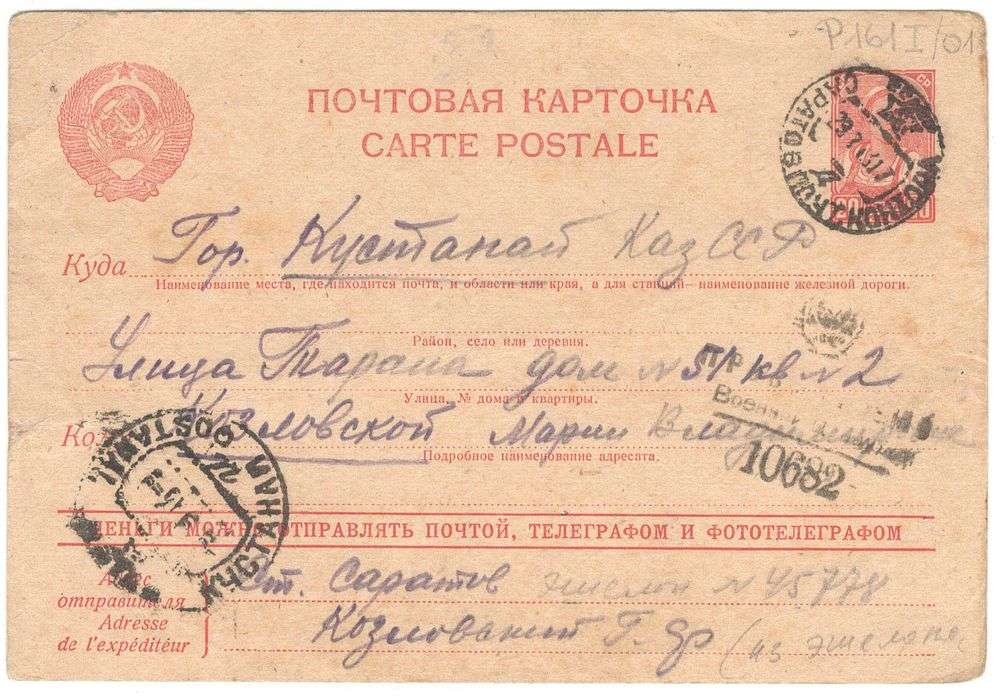 P161 I/01
ПОЧТОВАЯ КАРТОЧКА
CARTE POSTALE
САРАТОВ
20
Куда Гор. Кустанай Каз ССР
Наименование места, где находится почта, и области или края, а для станций – наименование железной дороги.
Район, село или деревня.
Улица Тарана дом №51 кв №2
Улица, № дома и квартиры.
Козловской Марии
Подробное наименование адресата.
10682
КУСТАНАЙ
COUSTANAI
ДЕНЬГИ МОЖНО ОТПРАВЛЯТЬ ПОЧТОЙ, ТЕЛЕГРАФОМ И ФОТОТЕЛЕГРАФОМ
Адрес отправителя
Adresse
de l'expéditeur
Ст. Саратов эшелон №45778
Г. (из эшелона)